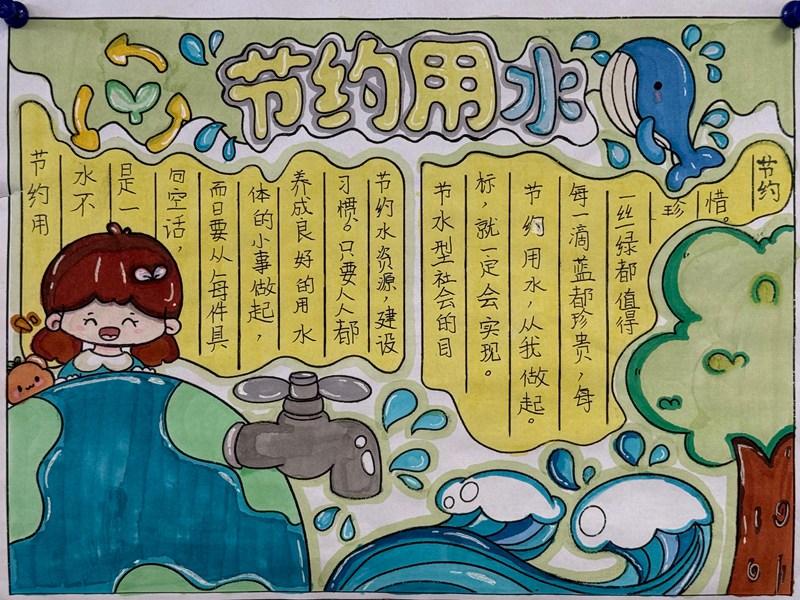 节约用水
节约用
水不
是一
句空话，
而日要从每件具
体的小事做起，
养成良好的用水
习惯。只要人人都
节约水资源，建设
节水型社会的目
标，就一定会实现。
节约用水，从我做起。
每一滴蓝都珍贵，每
一丝绿都值得
珍
惜。
节约